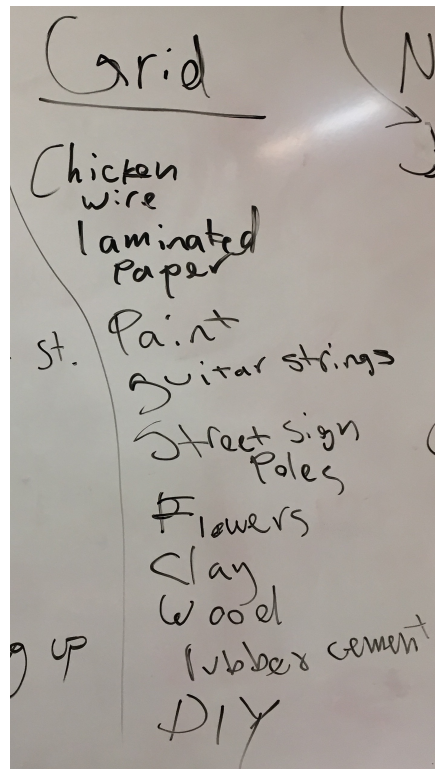 Grid
N
Chicken
wire
laminated
Paper
Paint
st.
guitar strings
Street sign
Poles
Flowers
Clay
Wood
rubber cement
up
DIY